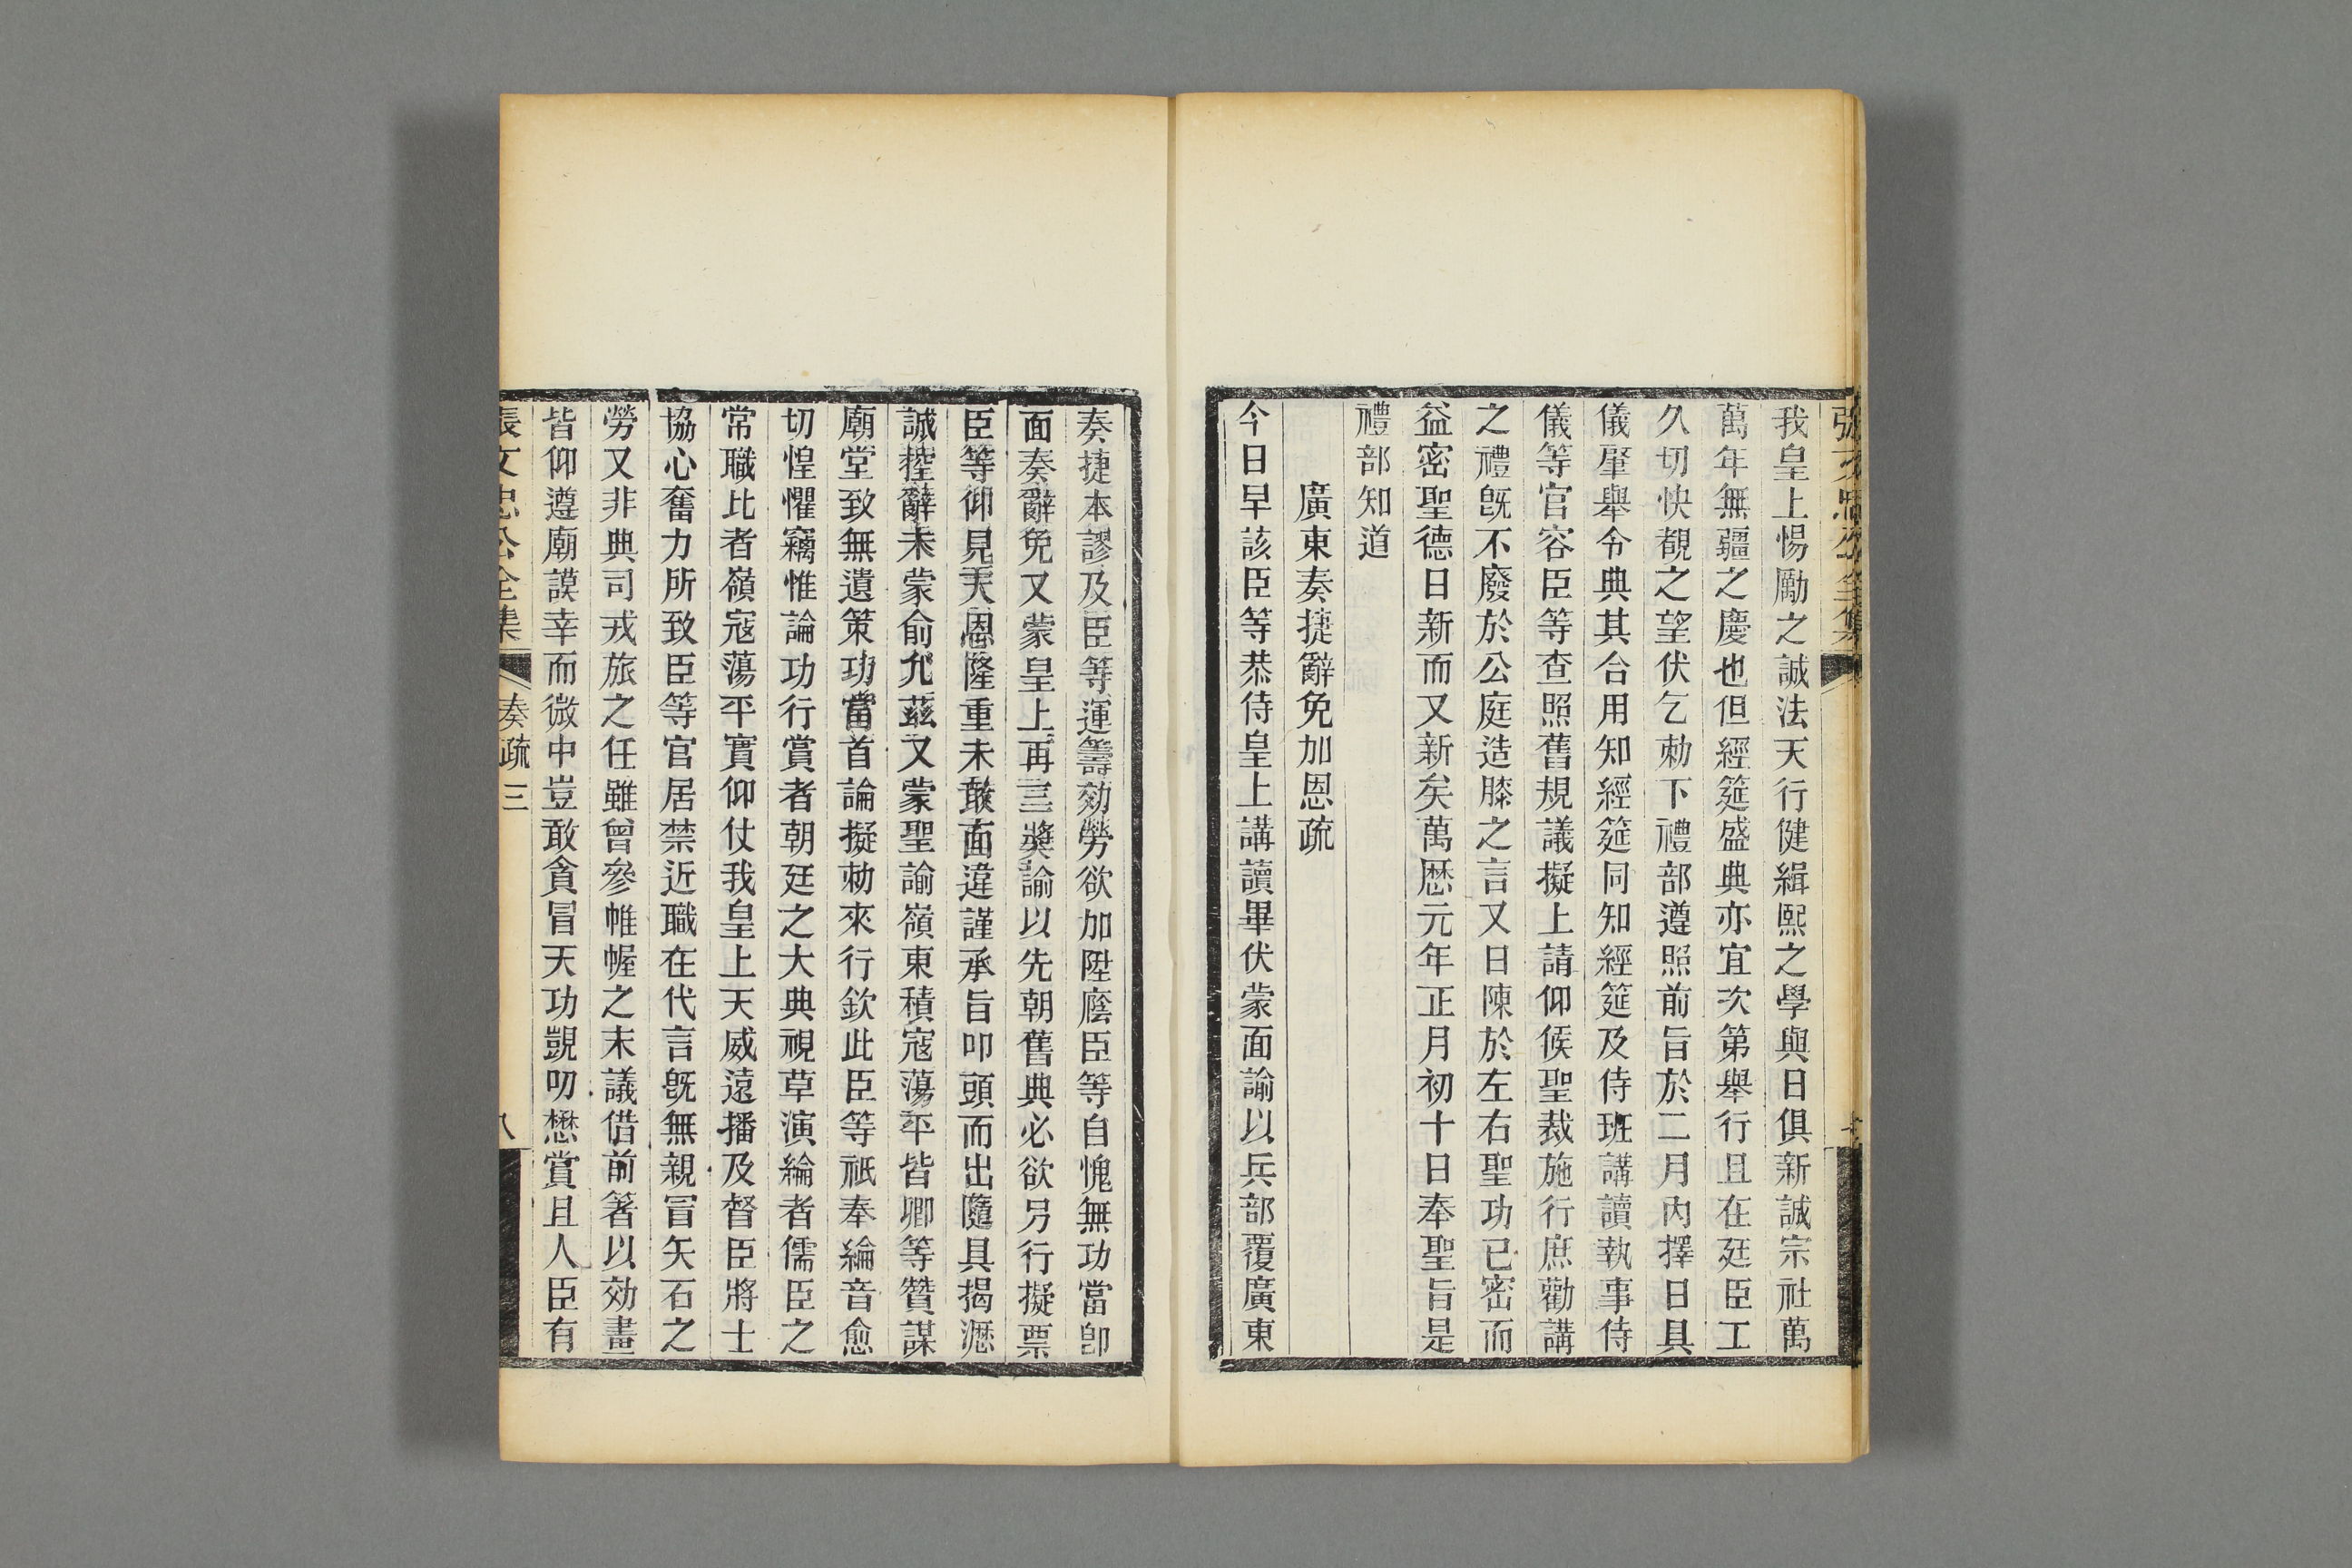 張文忠公全集
我皇上惕勵之誠法天行健緝熙之學與日俱新誠宗社萬
萬年無疆之慶也但經筵盛典亦宜次第舉行且在廷臣工
久切快覩之望伏乞勅下禮部遵照前旨於二月內擇日具
儀肇舉令典其合用知經筵同知經筵及侍班講讀執事侍
儀等官容臣等查照舊規議擬上請仰候聖裁施行庶勸講
之禮旣不廢於公庭造膝之言又日陳於左右聖功已密而
益密聖德日新而又新矣萬厯元年正月初十日奉聖旨是
禮部知道
廣東奏捷辭免加恩疏
今日早該臣等恭侍皇上講讀畢伏蒙面諭以兵部覆廣東
奏捷本謬及臣等運籌効勞欲加陞廕臣等自愧無功當卽
面奏辭免又蒙皇上再三獎諭以先朝舊典必欲另行擬票
臣等仰見天恩隆重未敢面違謹承旨叩頭而出隨具揭瀝
誠控辭未蒙俞允茲又蒙聖諭嶺東積寇蕩平皆卿等贊謀
廟堂致無遺策功當首論擬勅來行欽此臣等祇奉綸音愈
切惶懼竊惟論功行賞者朝廷之大典視草演綸者儒臣之
常職比者嶺寇蕩平實仰仗我皇上天威遠播及督臣將士
協心奮力所致臣等官居禁近職在代言旣無親冒矢石之
勞又非典司戎旅之任雖曾參帷幄之末議借前箸以効畫
皆仰遵廟謨幸而微中豈敢貪冒天功覬叨懋賞且人臣有
張文忠公全集
奏疏三
八